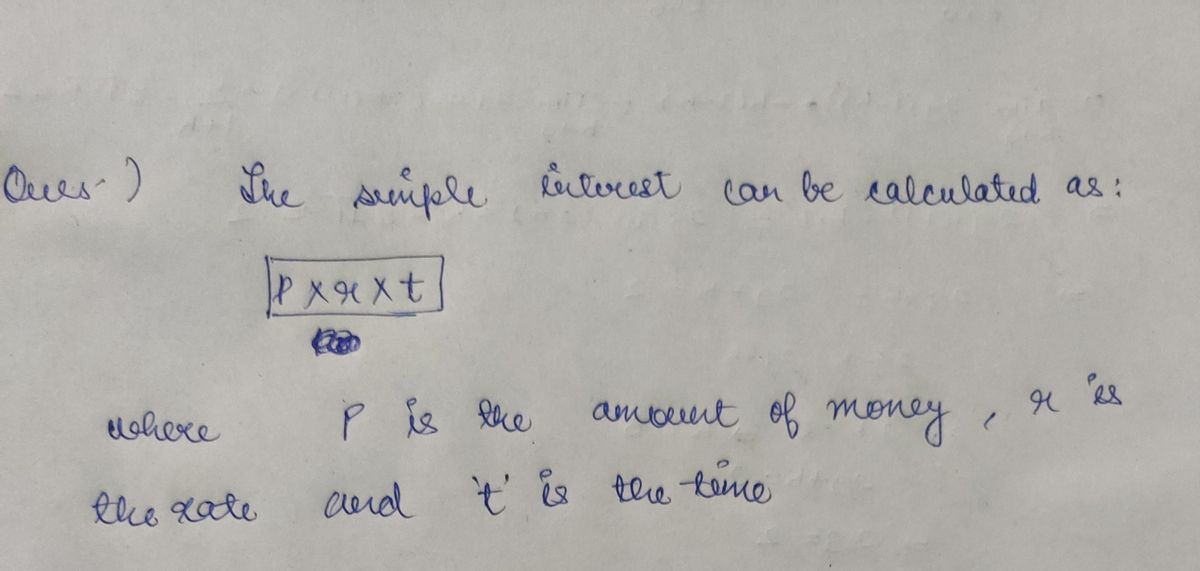 Ques-) The simple interest can be calculated as:
P x r x t
where P is the amount of money, r is
the rate and 't' is the time